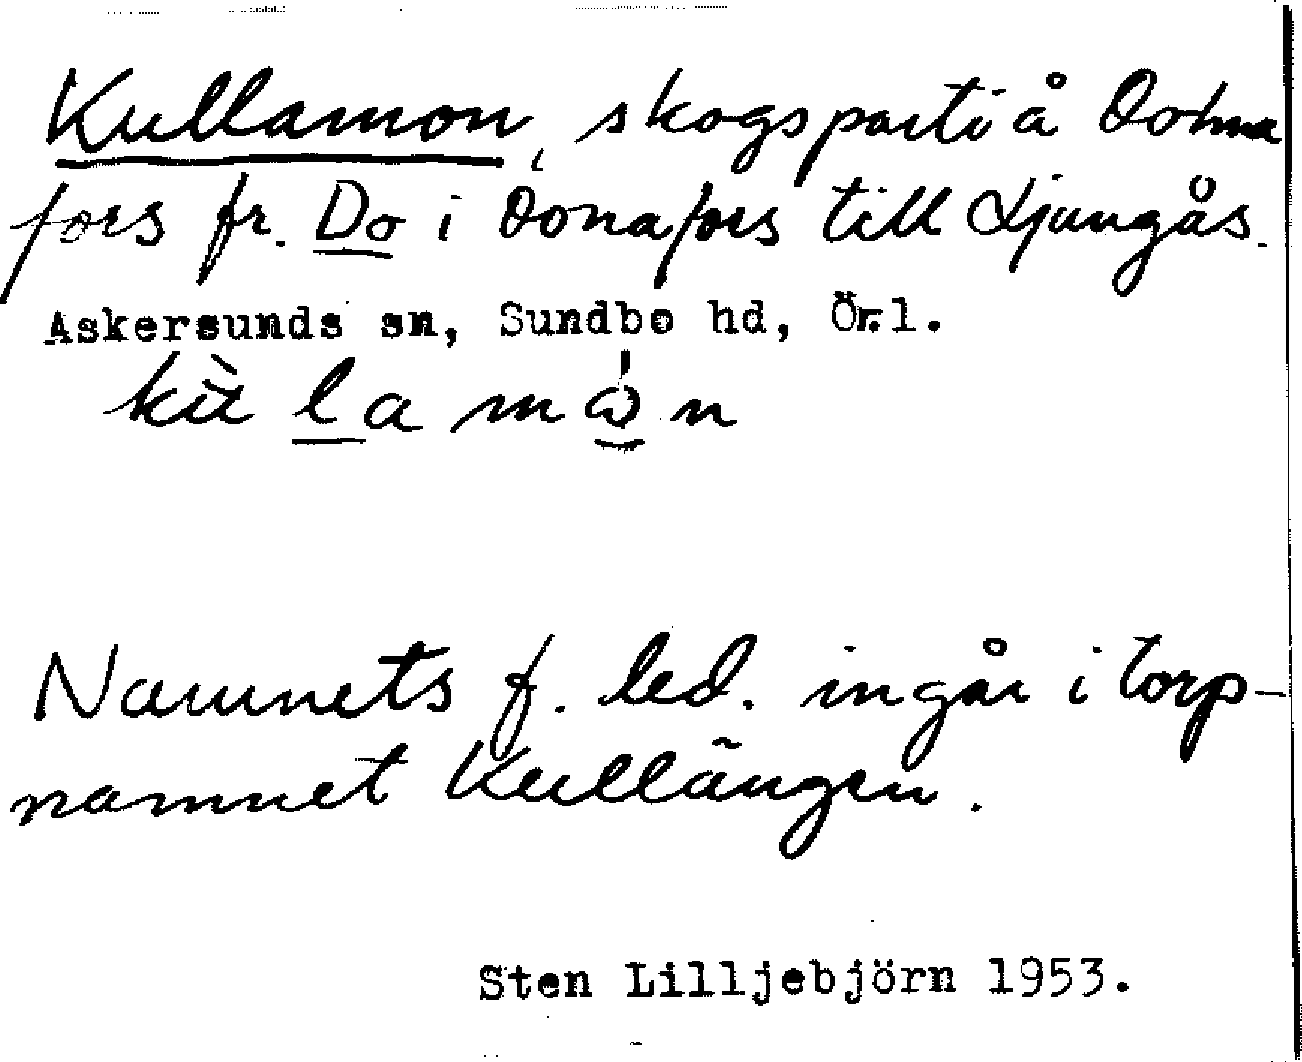 Kullamon, skogsparti å Dohna
fors fr. Do i Donafors till Ljungås.
Askersunds sn, Sundbo hd, Ör.l.
Namnets f. led. ingår i torp-
namnet Kullängen.
Sten Lilljebjörn 1953.